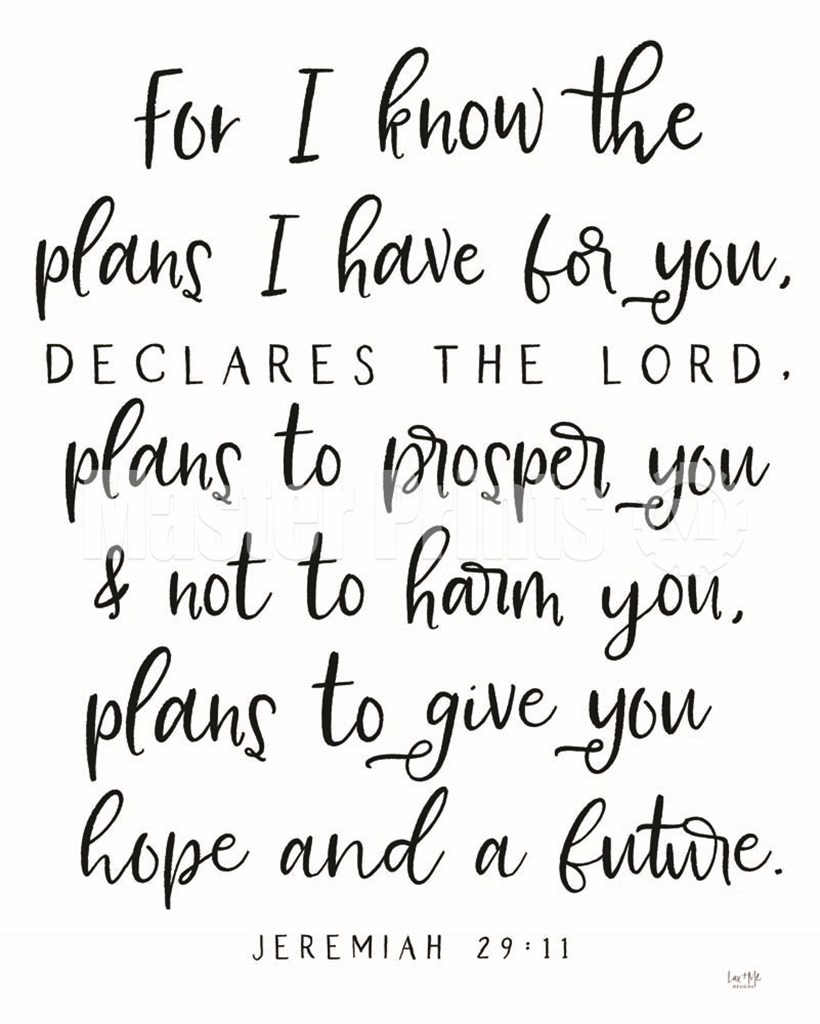 For I know the
plans I have for you,
DECLARES THE LORD,
plans to prosper you
Master Prints M
& not to harm you,
plans to give you
hope and a future.
JEREMIAH 29:11
Lux + Me
DESIGNS